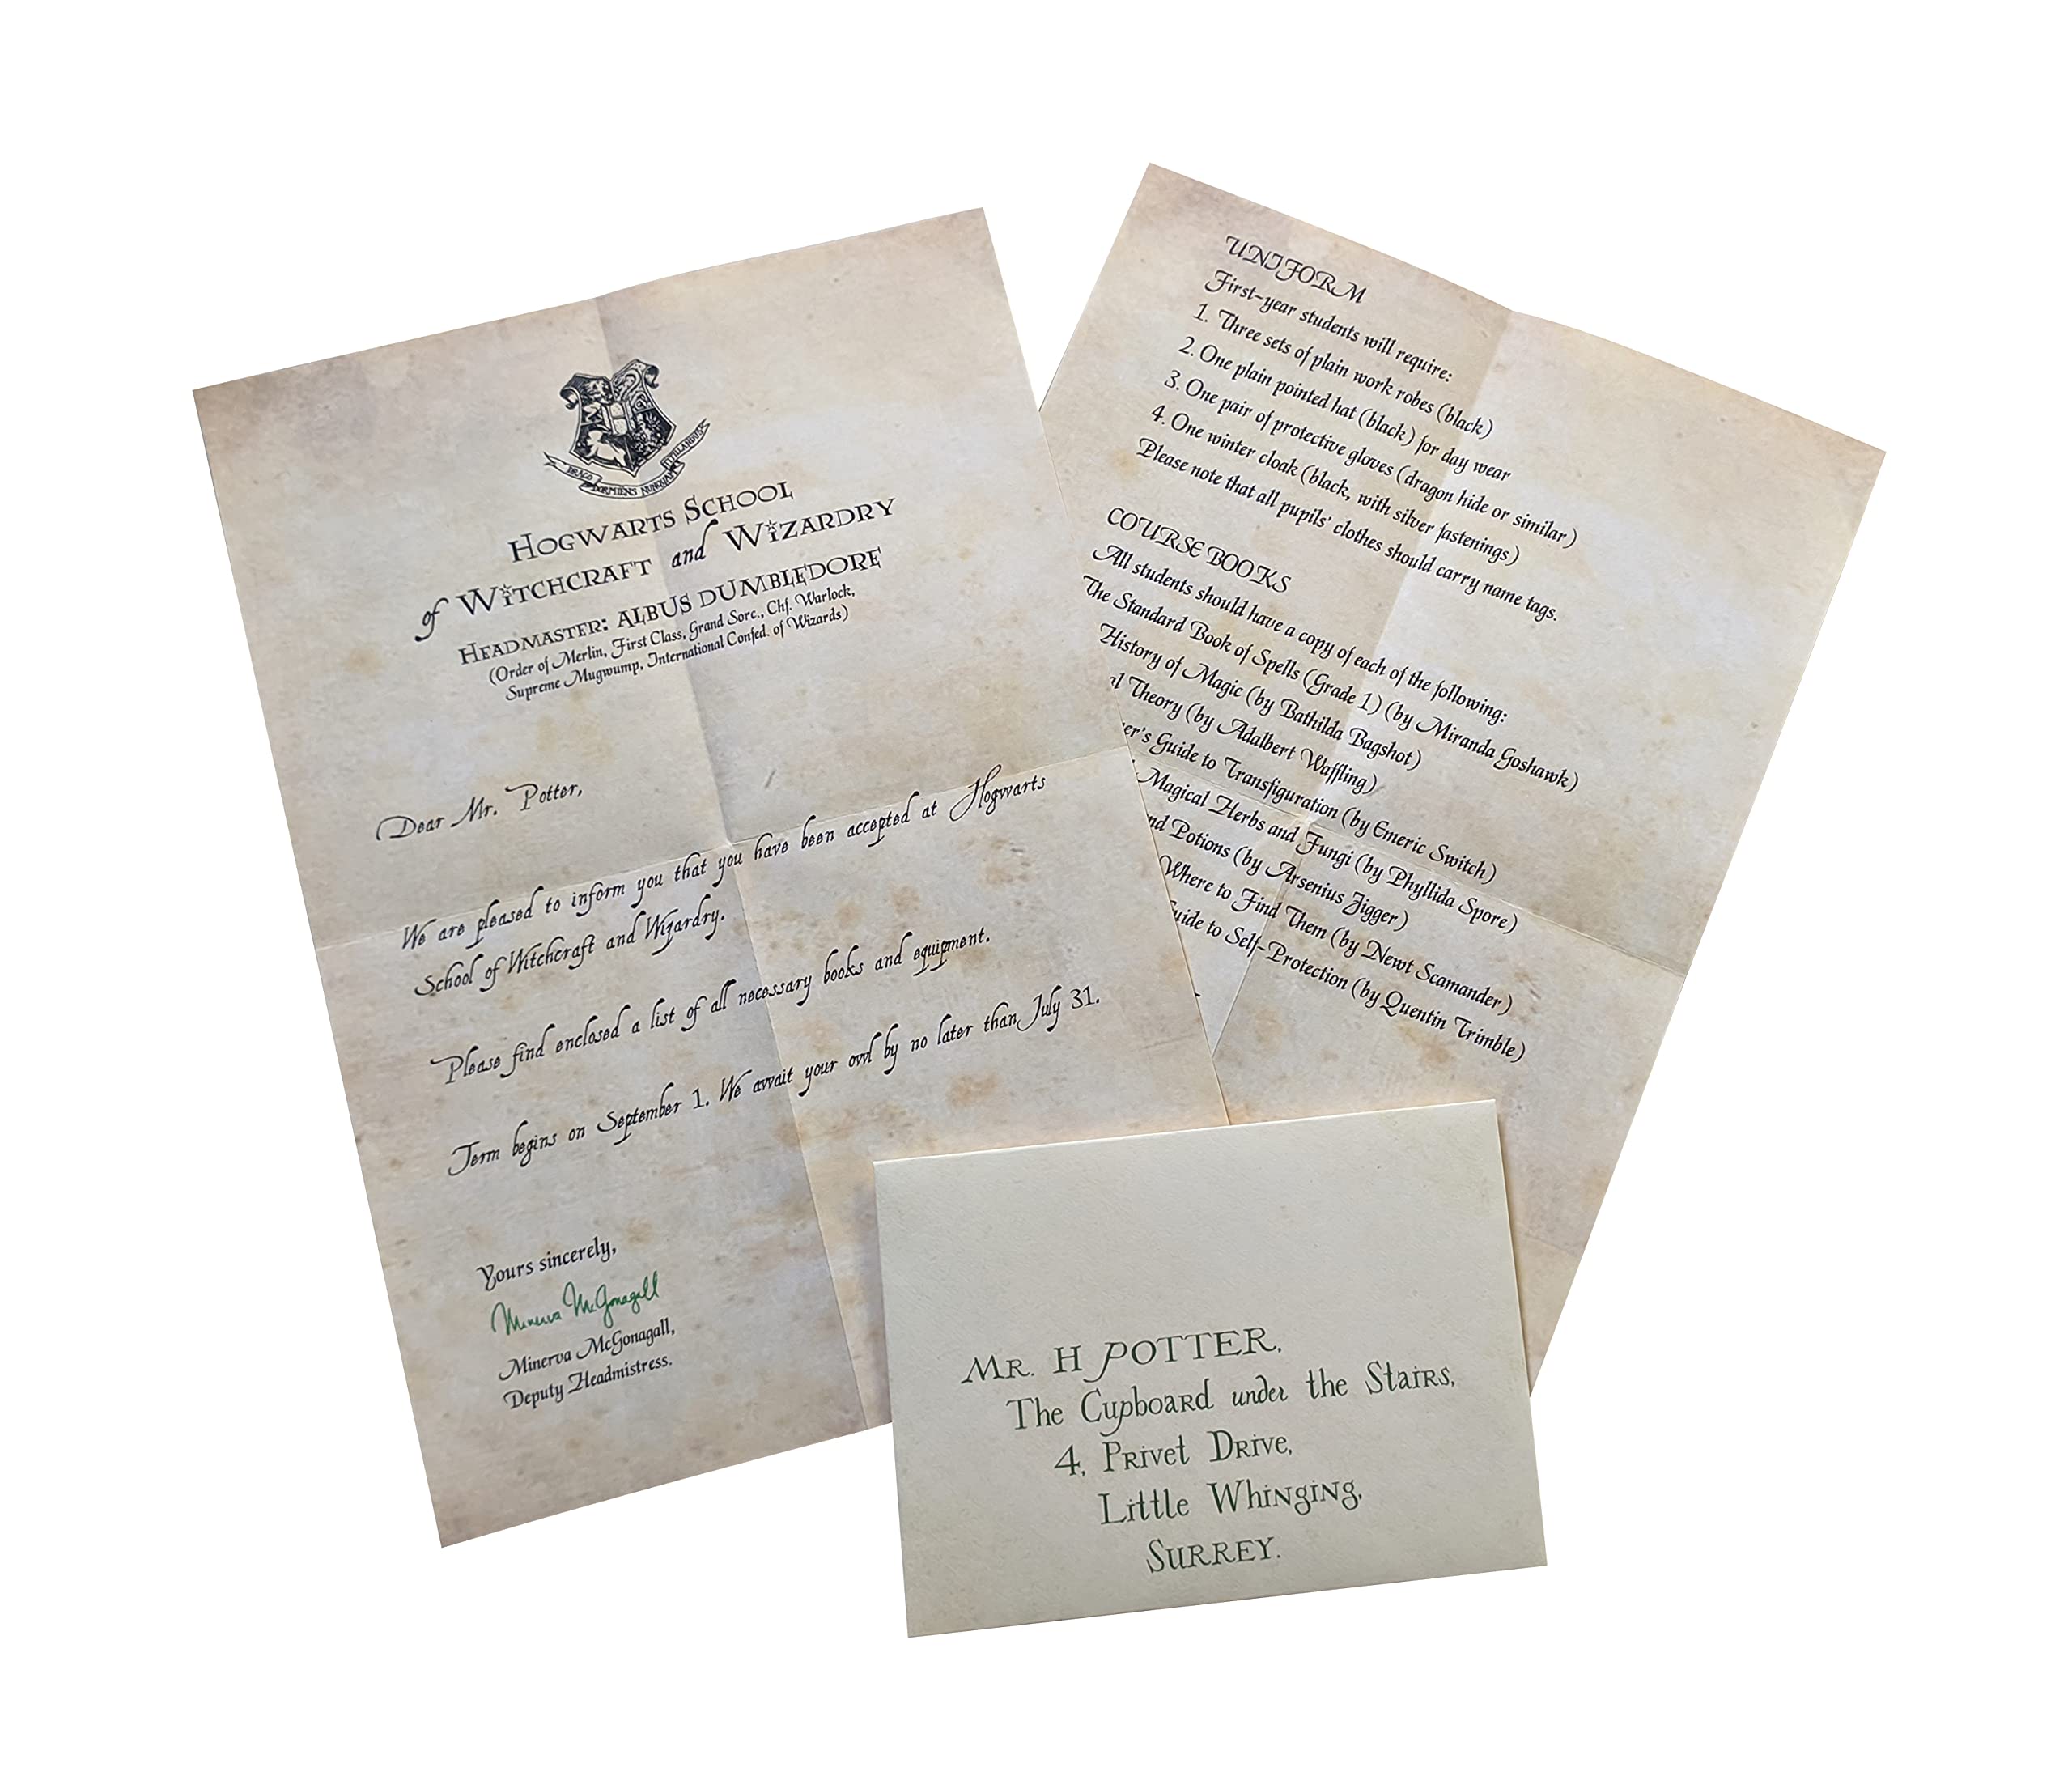 DRACO DORMIENS NUNQUAM TITILLANDUS
HOGWARTS SCHOOL
of WITCHCRAFT and WIZARDRY
HEADMASTER: ALBUS DUMBLEDORE
(Order of Merlin, First Class, Grand Sorc., Chf. Warlock,
Supreme Mugwump, International Confed. of Wizards)
Dear Mr. Potter,
We are pleased to inform you that you have been accepted at Hogwarts
School of Witchcraft and Wizardry.
Please find enclosed a list of all necessary books and equipment.
Term begins on September 1. We await your owl by no later than July 31.
Yours sincerely,
Minerva McGonagall
Minerva McGonagall,
Deputy Headmistress.
UNIFORM
First-year students will require:
1. Three sets of plain work robes (black)
2. One plain pointed hat (black) for day wear
3. One pair of protective gloves (dragon hide or similar)
4. One winter cloak (black, with silver fastenings)
Please note that all pupils' clothes should carry name tags.
COURSE BOOKS
All students should have a copy of each of the following:
The Standard Book of Spells (Grade 1) (by Miranda Goshawk)
History of Magic (by Bathilda Bagshot)
Theory (by Adalbert Waffling)
Guide to Transfiguration (by Emeric Switch)
Magical Herbs and Fungi (by Phyllida Spore)
Potions (by Arsenius Jigger)
Where to Find Them (by Newt Scamander)
to Self-Protection (by Quentin Trimble)
MR. H POTTER,
The Cupboard under the Stairs,
4, Privet Drive,
Little Whinging,
SURREY.